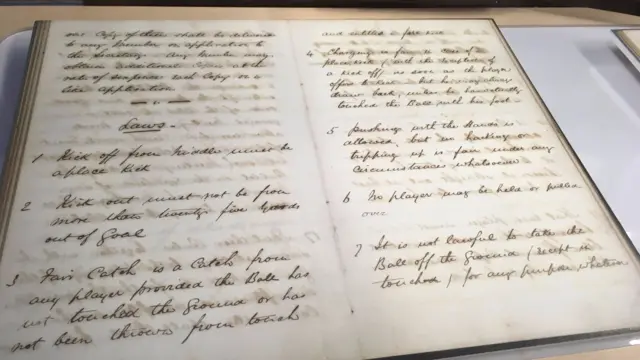 one Copy of these shall be delivered
to any Member on application to
the Secretary. Any Member may
obtain additional Copies at the
rate of sixpence each Copy on a
like application.
Laws.
1 Kick off from Middle must be
a place Kick
2 Kick out must not be from
more than twenty five yards
out of Goal
3 Fair Catch is a Catch from
any player provided the Ball has
not touched the Ground or has
not been thrown from touch
and entitled to free kick
4 Charging is fair in case of a
place kick (with the exception of
a kick off) as soon as the player
offers to kick but he may always
draw back, unless he has actually
touched the Ball with his foot
5 Pushing with the Hands is
allowed, but no hacking or
tripping up is fair under any
Circumstances whatsoever
6 No player may be held or pulled
over
7 It is not lawful to take the
Ball off the Ground (except in
touched) for any purpose whatever